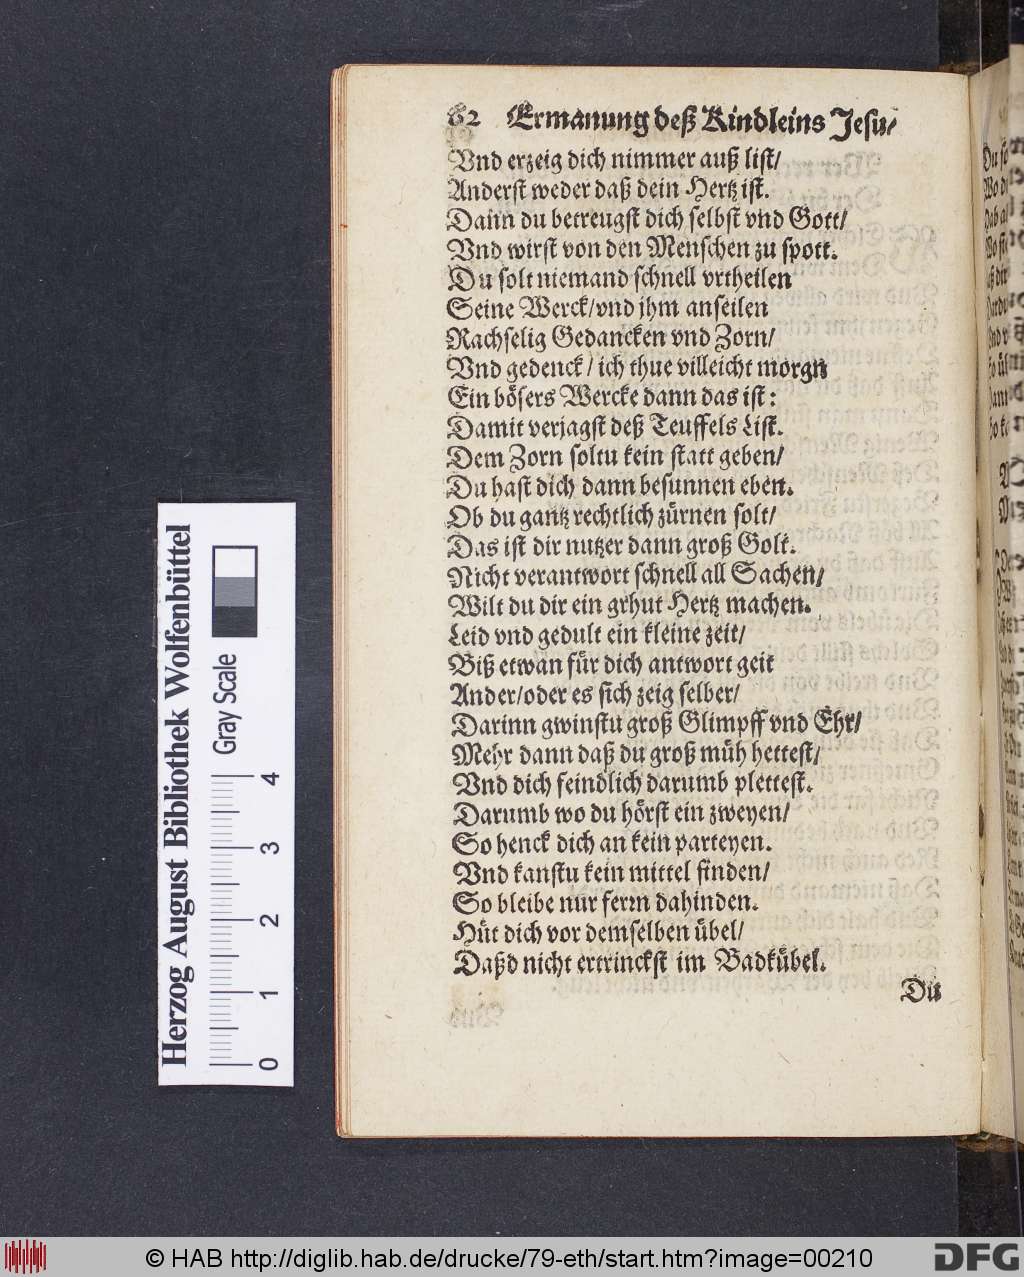 62 Ermanung deß Kindleins Jesu/
Vnd erzeig dich nimmer auß list/
Anderst weder daß dein Hertz ist.
Dann du betreugst dich selbst vnd Gott/
Vnd wirst von den Menschen zu spott.
Du solt niemand schnell vrtheilen
Seine Werck/vnd jhm anseilen
Rachselig Gedancken vnd Zorn/
Vnd gedenck/ ich thue villeicht morgn
Ein bösers Wercke dann das ist:
Damit verjagst deß Teuffels List.
Dem Zorn soltu kein statt geben/
Du hast dich dann besunnen eben.
Ob du gantz rechtlich zürnen solt/
Das ist dir nutzer dann groß Golt.
Nicht verantwort schnell all Sachen/
Wilt du dir ein grhut Hertz machen.
Leid vnd gedult ein kleine zeit/
Biß etwan für dich antwort geit
Ander/oder es sich zeig selber/
Darinn gwinstu groß Glimpff vnd Ehr/
Mehr dann daß du groß müh hettest/
Vnd dich feindlich darumb plettest.
Darumb wo du hörst ein zweyen/
So henck dich an kein parteyen.
Vnd kanstu kein mittel finden/
So bleibe nur ferrn dahinden.
Hüt dich vor demselben übel/
Daßd nicht ertrinckst im Badkübel.
Du
Herzog August Bibliothek Wolfenbüttel
Gray Scale
0 1 2 3 4
© HAB http://diglib.hab.de/drucke/79-eth/start.htm?image=00210
DFG